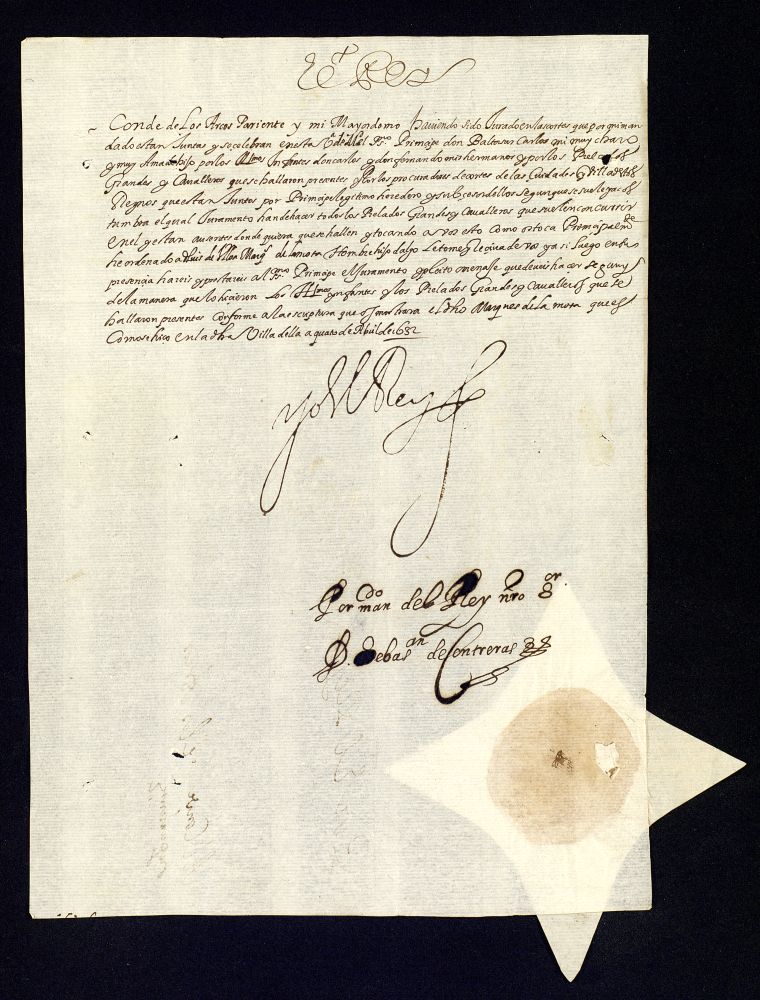 El Rey
Conde de Los Arcos Pariente y mi Mayordomo haviendo sido Jurado en las cortes que por mi man
dado estan Juntas y se celebran en esta Vª de Md el Sermo Principe don Baltasar Carlos mi muy charo
y muy Amado hijo por los Infantes don carlos y don fernando mis hermanos y por los Prelados
Grandes y Cavalleros que se hallaron presentes y Por los procuradores de cortes de las Ciudades y Villas destos
Reynos que estan Juntos por Principe legitimo heredero y subcessor dellos segun que se suele y acos
tumbra el qual Juramento han de hacer todos los Prelados Grandes y Cavalleros que suelen concurrir
en el y estan ausentes donde quiera que se hallen y tocando a vos esto como os toca Principalmte
he ordenado a de la mota Hombre hijo dalgo le tome y reciva de vos y assi luego en su
presencia hareis y prestareis al Sermo Principe el Juramento y pleito omenaje que deveis hacer segun y
de la manera que lo hicieron los Infantes y los Prelados Grandes y Cavalleros que se
hallaron presentes Conforme a la escriptura que os mostrara el dho Marques de la mota que es
Como se hico en la dha Villa della a quatro de Abril de 1632
Yo el Rey
Por mando del Rey nro sor
D. Sebasan de Contreras